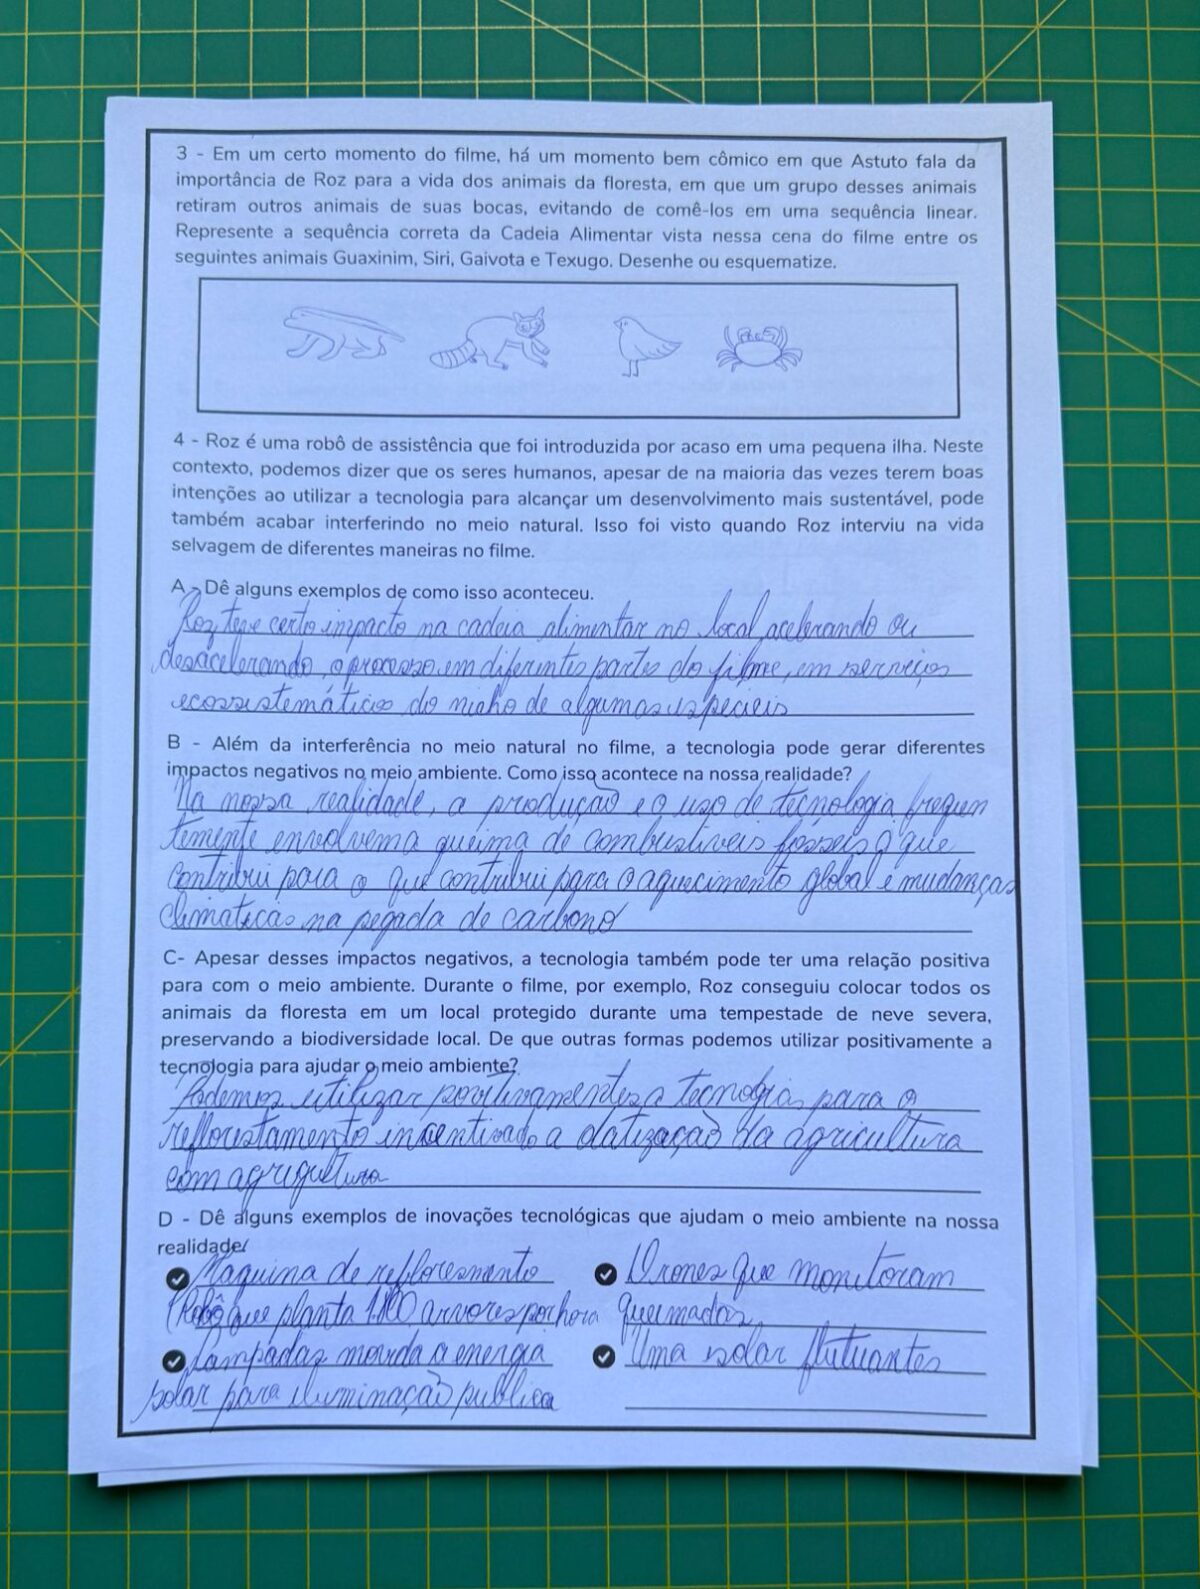 3 - Em um certo momento do filme, há um momento bem cômico em que Astuto fala da
importância de Roz para a vida dos animais da floresta, em que um grupo desses animais
retiram outros animais de suas bocas, evitando de comê-los em uma sequência linear.
Represente a sequência correta da Cadeia Alimentar vista nessa cena do filme entre os
seguintes animais Guaxinim, Siri, Gaivota e Texugo. Desenhe ou esquematize.
4 - Roz é uma robô de assistência que foi introduzida por acaso em uma pequena ilha. Neste
contexto, podemos dizer que os seres humanos, apesar de na maioria das vezes terem boas
intenções ao utilizar a tecnologia para alcançar um desenvolvimento mais sustentável, pode
também acabar interferindo no meio natural. Isso foi visto quando Roz interviu na vida
selvagem de diferentes maneiras no filme.
A - Dê alguns exemplos de como isso aconteceu.
Roz teve certo impacto na cadeia alimentar no local acelerando ou
desacelerando, o processo em diferentes partes do filme, em serviços
ecossistemáticos do nicho de algumas especieis
B - Além da interferência no meio natural no filme, a tecnologia pode gerar diferentes
impactos negativos no meio ambiente. Como isso acontece na nossa realidade?
Na nossa realidade, a produção e o uso de tecnologia frequen
temente envolvem a queima de combustiveis fosseis o que
contribui para o que contribui para o aquecimento global e mudanças
climaticas na pegada de carbono
C- Apesar desses impactos negativos, a tecnologia também pode ter uma relação positiva
para com o meio ambiente. Durante o filme, por exemplo, Roz conseguiu colocar todos os
animais da floresta em um local protegido durante uma tempestade de neve severa,
preservando a biodiversidade local. De que outras formas podemos utilizar positivamente a
tecnologia para ajudar o meio ambiente?
Podemos utilizar a tecnologia para o
reflorestamento a da agricultura
com
D - Dê alguns exemplos de inovações tecnológicas que ajudam o meio ambiente na nossa
realidade/
Maquina de
(Robô que planta arvores por hora
Drones que monitoram
queimadas
Lampadas a energia
solar para iluminação publica
solar flutuantes